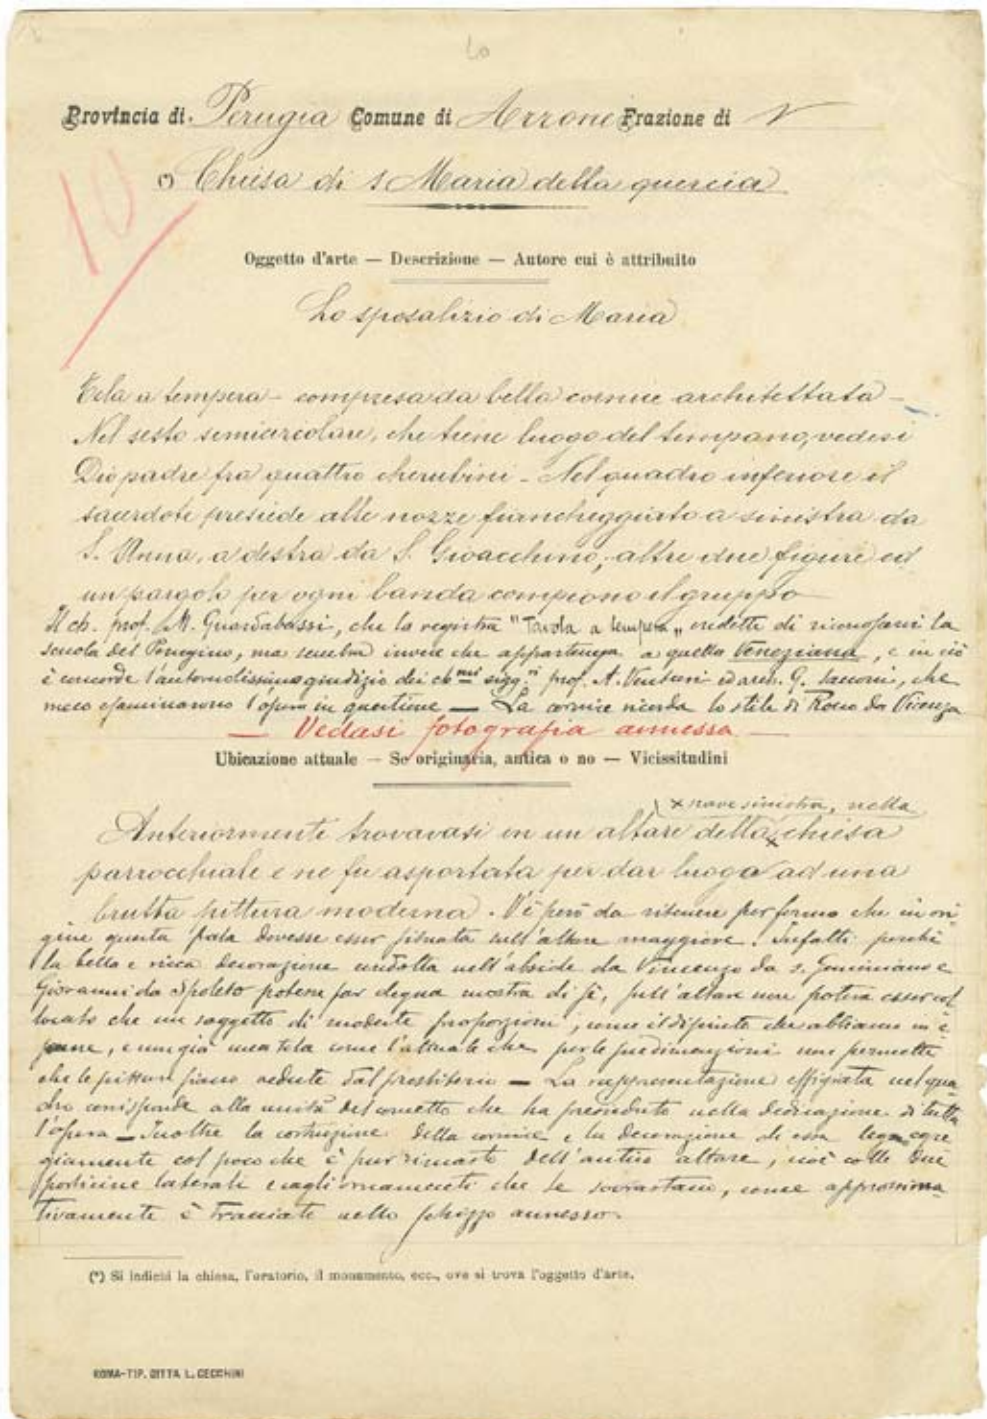 10
Provincia di Perugia Comune di Arrone Frazione di
Chiesa di S Maria della quercia
10
Oggetto d'arte — Descrizione — Autore cui è attribuito
Lo sposalizio di Maria
Tela a tempera – compresa da bella cornice architettata –
Nel sesto semicircolare, che tiene luogo del timpano, vedesi
Dio padre fra quattro cherubini – Nel quadro inferiore il
sacerdote presiede alle nozze fiancheggiato a sinistra da
S. Anna, a destra da S. Gioacchino, altre due figure ed
un pargolo per ogni banda compiono il gruppo
Il ch. prof. M. Guardabassi, che la registra "Tavola a tempera„ credette di riconoscervi la
scuola del Perugino, ma sembra invece che appartenga a quella Veneziana, e in ciò
è concorde l'autorevolissimo giudizio dei ch.mi sigg.ri prof. A. Venturi ed arch. G. Sacconi, che
meco esaminarono l'opera in questione — La cornice ricorda lo stile di Rocco da Vicenza
— Vedasi fotografia annessa —
Ubicazione attuale — Se originaria, antica o no — Vicissitudini
x nave sinistra, nella
Anteriormente trovavasi in un altare della x chiesa
parrocchiale e ne fu asportata per dar luogo ad una
brutta pittura moderna. V'è però da ritenere per fermo che in ori
gine questa pala dovesse esser situata sull'altare maggiore. Infatti perchè
la bella e ricca decorazione condotta nell'abside da Vincenzo da S. Geminiano e
Giovanni da Spoleto potesse far degna mostra di sè, sull'altare non poteva esser col
locato che un soggetto di modeste proporzioni, come il dipinto che abbiamo in e
same, e non già una tela come l'attuale che per le sue dimenzioni non permette
che le pitture siano vedute dal presbiterio — La rappresentazione effigiata nel qua
dro corrisponde alla unità del concetto che ha preceduto nella dedicazione di tutta
l'opera — Inoltre la costruzione della cornice e la decorazione di essa lega egre
giamente col poco che è pur rimasto dell'antico altare, cioè colle due
porticine laterali e cogli ornamenti che le sovrastano, come approssima
tivamente è tracciato nello schizzo annesso.
(*) Si indichi la chiesa, l'oratorio, il monumento, ecc., ove si trova l'oggetto d'arte.
ROMA-TIP. DITTA L. CECCHINI